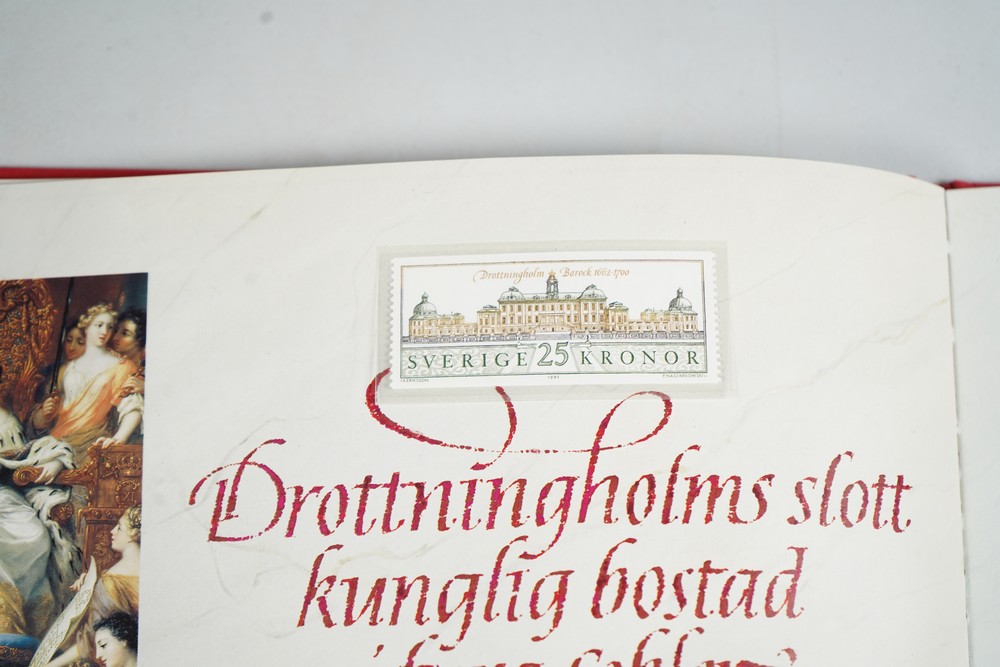 Drottningholm ★ Barock 1662-1700
SVERIGE 25 KRONOR
1991
Drottningholms slott
kunglig bostad